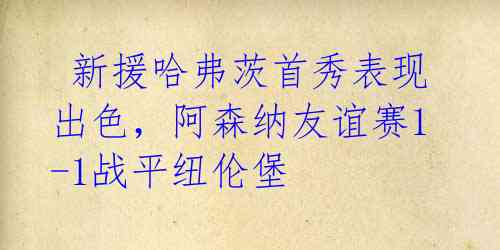 新援哈弗茨首秀表现
出色，阿森纳友谊赛1
-1战平纽伦堡